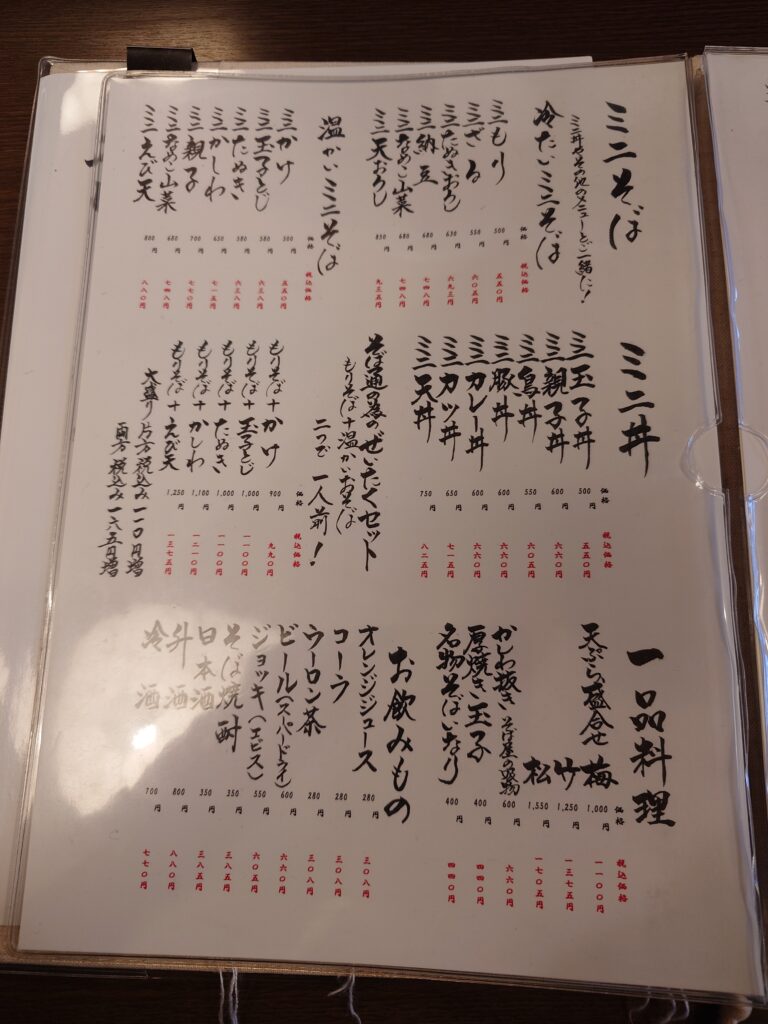 ミニそば
ミニ丼やその他のメニューとご一緒に！
冷たいミニそば
価格 税込価格
ミニもり 500円 五五〇円
ミニざる 550円 六〇五円
ミニたぬきおろし 630円 六九三円
ミニ納豆 680円 七四八円
ミニなめこ山菜 680円 七四八円
ミニ天おろし 850円 九三五円
温かいミニそば
価格 税込価格
ミニかけ 500円 五五〇円
ミニ玉子とじ 580円 六三八円
ミニたぬき 580円 六三八円
ミニかしわ 650円 七一五円
ミニ親子 700円 七七〇円
ミニなめこ山菜 680円 七四八円
ミニえび天 800円 八八〇円
ミニ丼
価格 税込価格
ミニ玉子丼 500円 五五〇円
ミニ親子丼 600円 六六〇円
ミニ鳥丼 550円 六〇五円
ミニ豚丼 600円 六六〇円
ミニカレー丼 600円 六六〇円
ミニカツ丼 650円 七一五円
ミニ天丼 750円 八二五円
そば通の為のぜいたくセット
もりそば＋温かいおそば
二つで 一人前！
価格 税込価格
もりそば＋かけ 900円 九九〇円
もりそば＋玉子とじ 1,000円 一一〇〇円
もりそば＋たぬき 1,000円 一一〇〇円
もりそば＋かしわ 1,100円 一二一〇円
もりそば＋えび天 1,250円 一三七五円
大盛り 片方 税込み 一一〇円増
両方 税込み 一六五円増
一品料理
価格 税込価格
天ぷら盛合せ 梅 1,000円 一一〇〇円
竹 1,250円 一三七五円
松 1,550円 一七〇五円
かしわ抜き そば屋の吸物 600円 六六〇円
厚焼き玉子 400円 四四〇円
名物そばいなり 400円 四四〇円
お飲みもの
オレンジジュース 280円 三〇八円
コーラ 280円 三〇八円
ウーロン茶 280円 三〇八円
ビール（スーパードライ） 600円 六六〇円
ジョッキ（エビス） 550円 六〇五円
そば焼酎 350円 三八五円
日本酒 350円 三八五円
升酒 800円 八八〇円
冷酒 700円 七七〇円